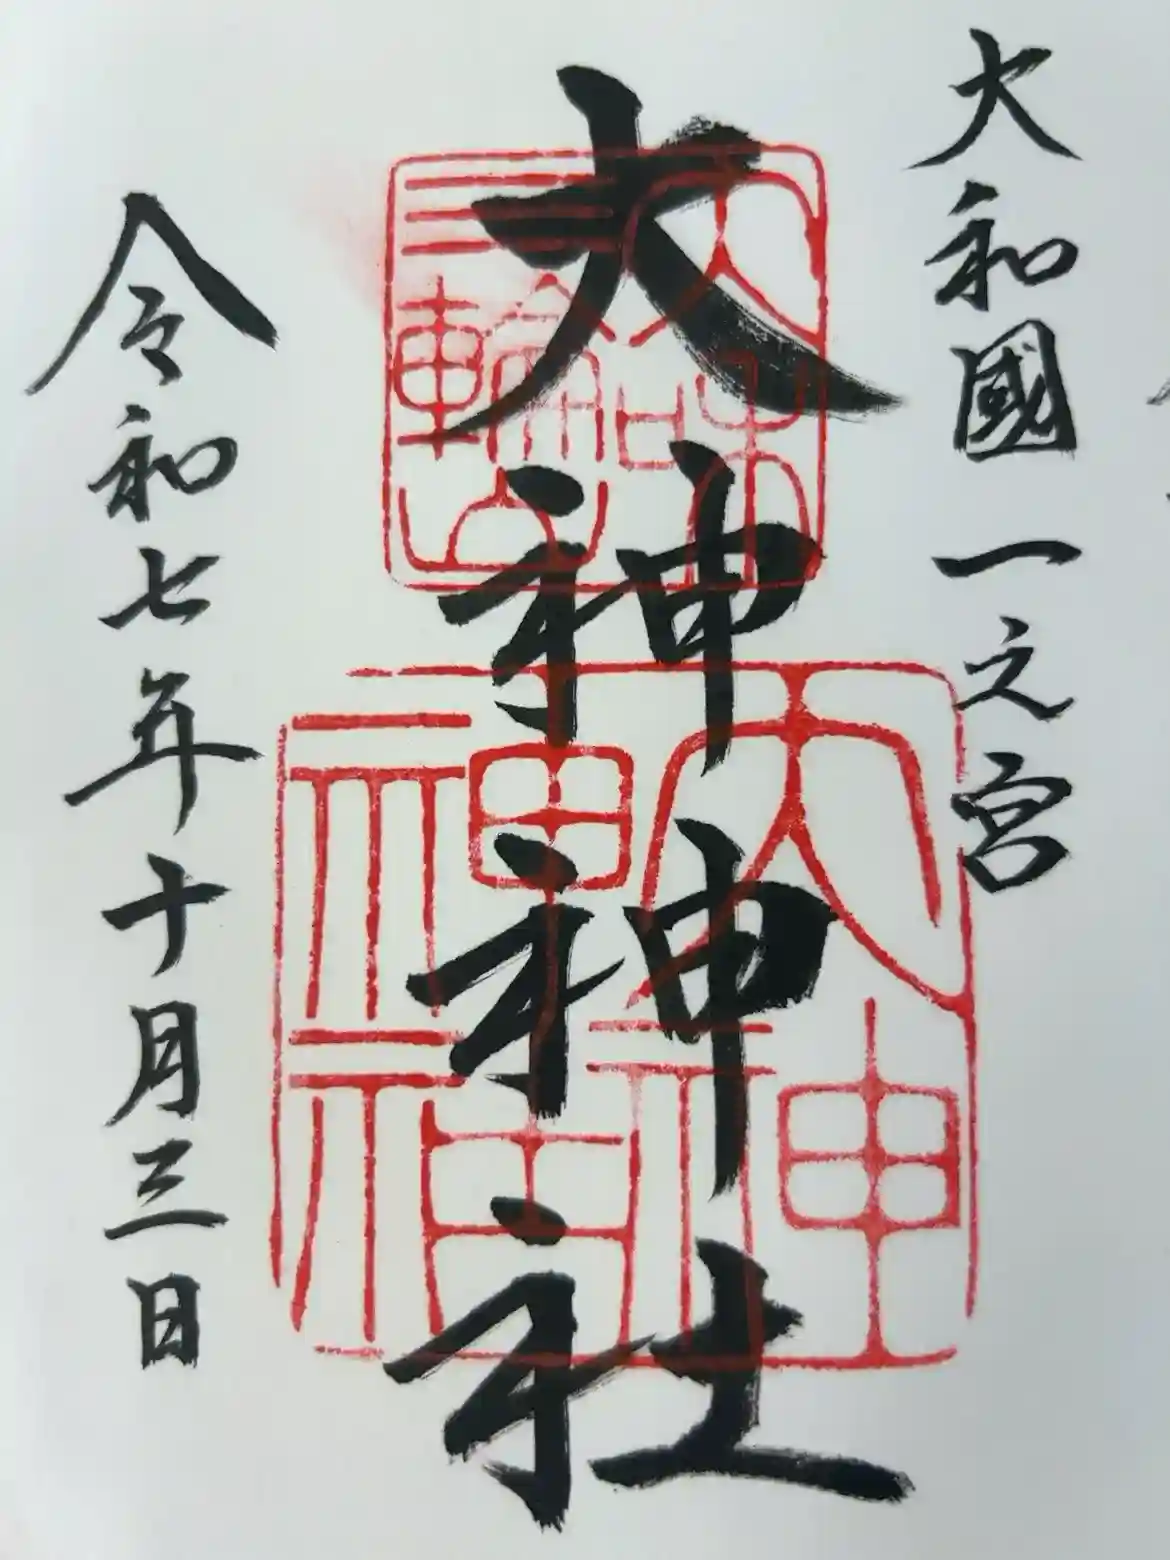 大和國一之宮
大神神社
令和七年十月三日
大和
三輪山
大神
神